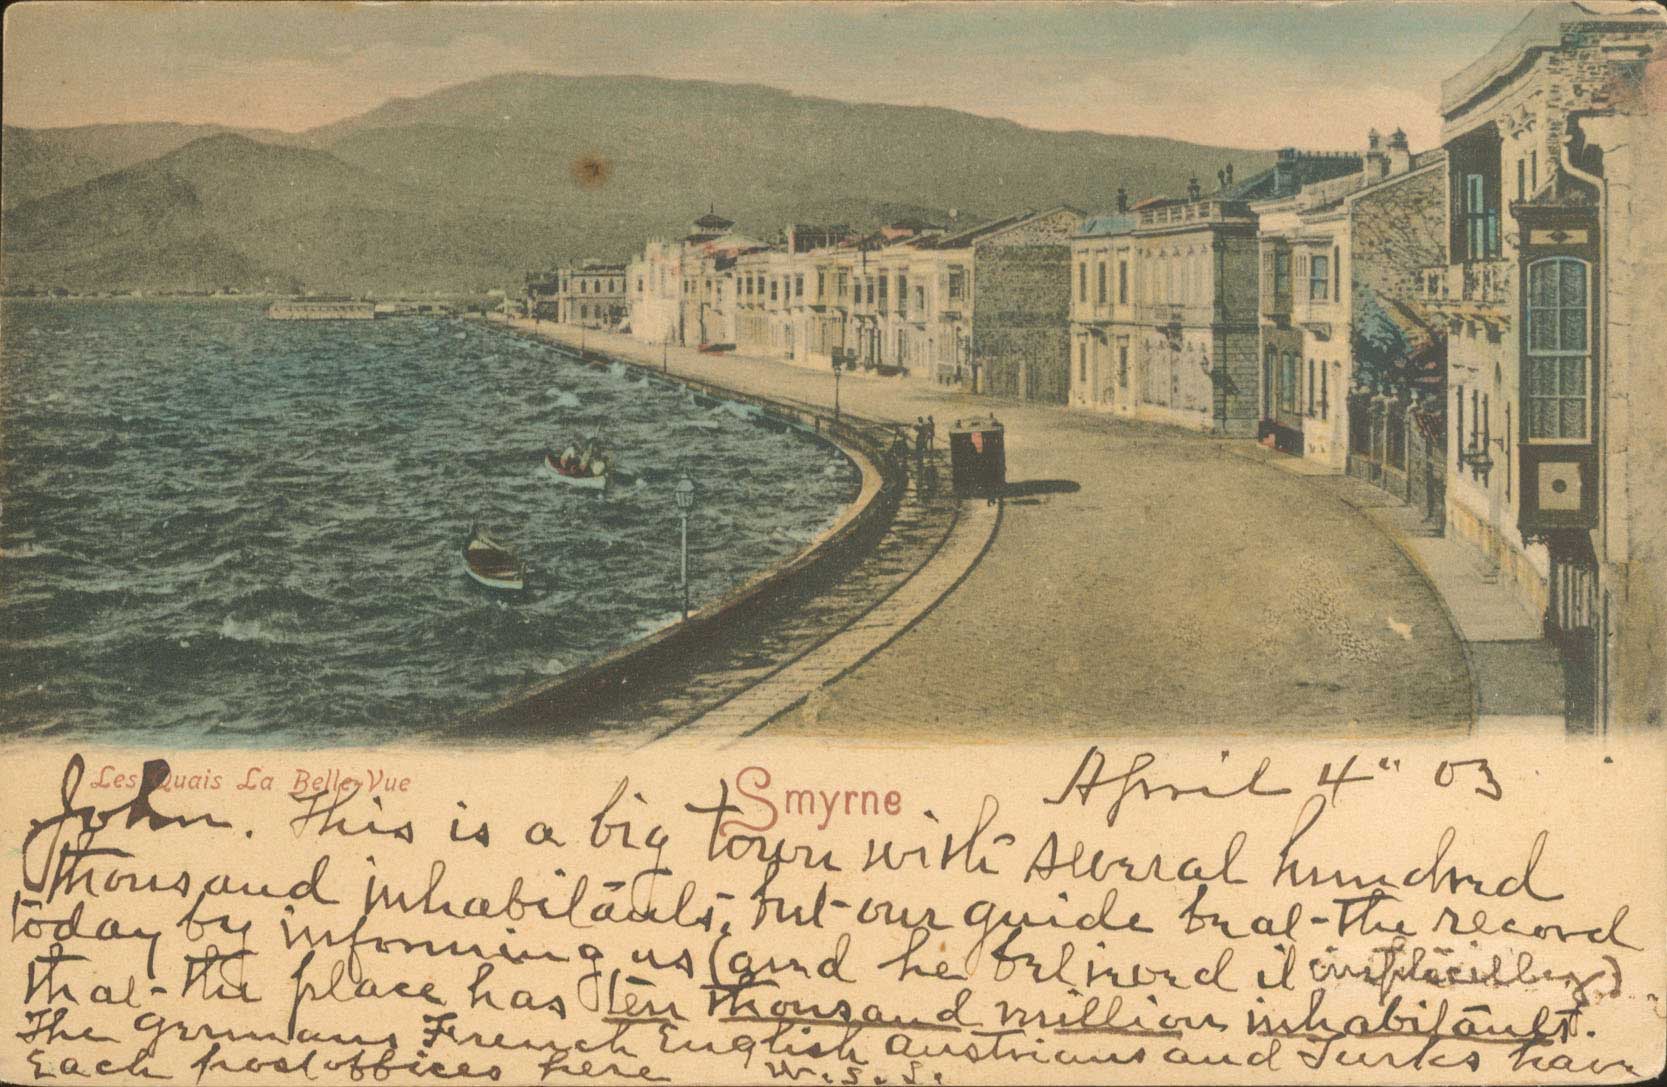 Les Quais La Belle-Vue
Smyrne
April 4" 03
John. This is a big town with several hundred
thousand inhabitants, but our guide beat the record
today by informing us (and he believed it implicitly)
that the place has ten thousand million inhabitants.
The Germans French English Austrians and Turks have
Each postoffices here W.S.S.